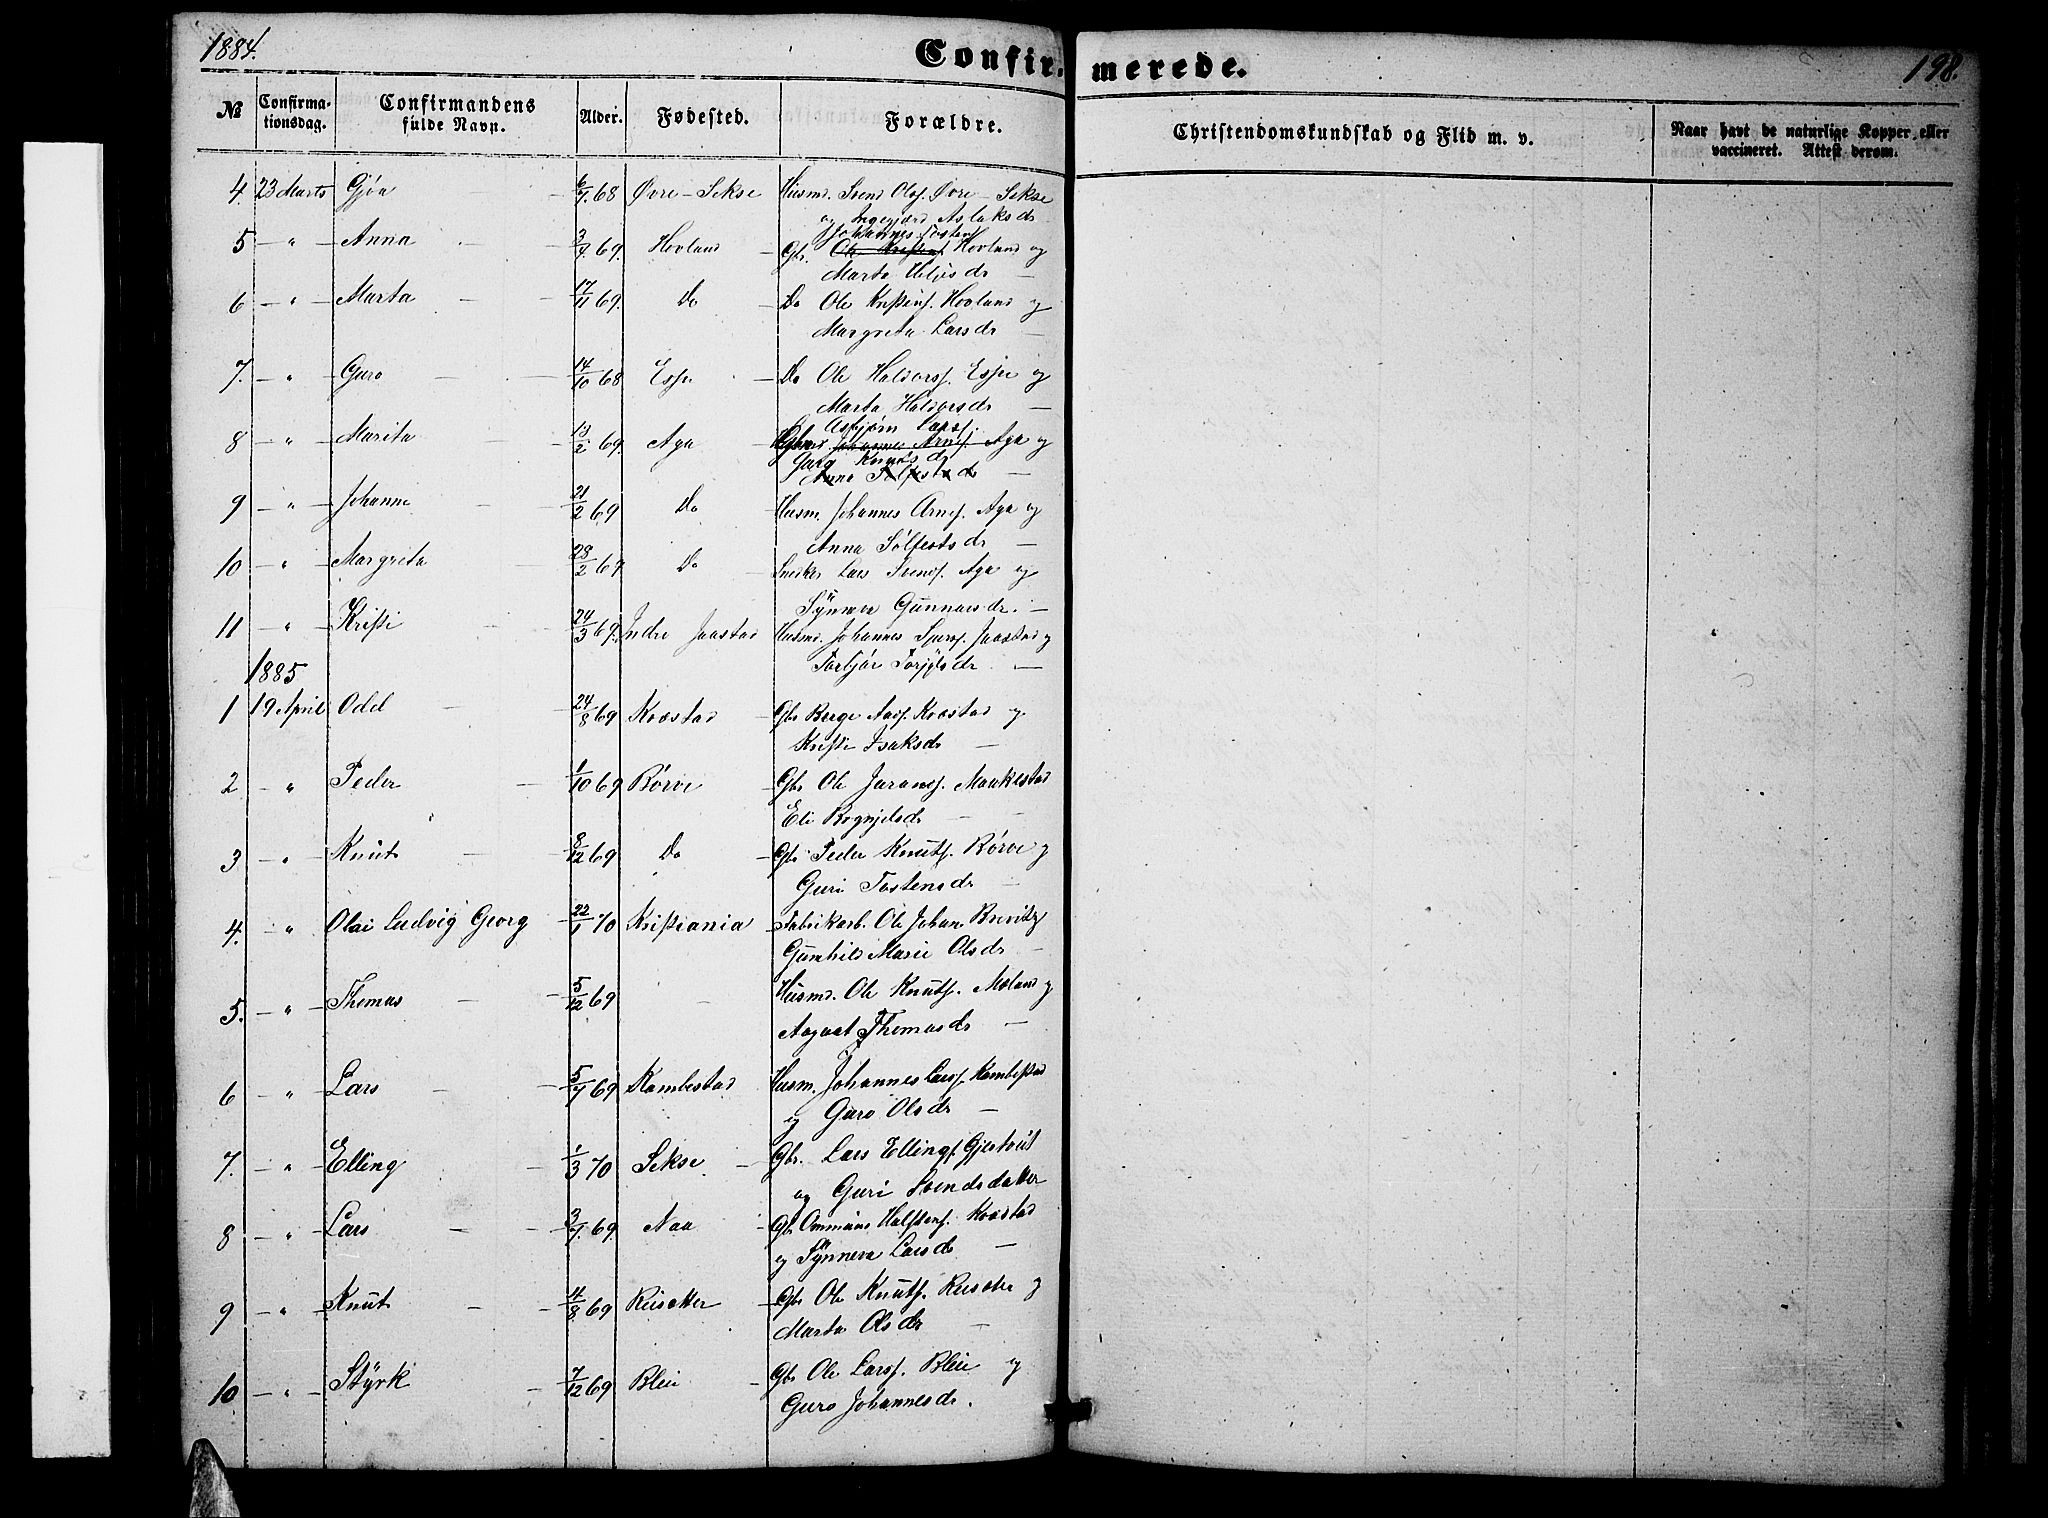 1884.
Confirmerede.
198.
№ Confirmationsdag. Confirmandens fulde Navn. Alder. Fødested. Forældre. Christendomskundskab og Flid m. v. Naar havt de naturlige Kopper eller vaccineret. Attest derom.
4. 23 Marts Gjøa — 68 Øvre-Sekse Husmd. Svend Ols. Øvre-Sekse
og Ingegjerd Aslaksdr
Johannes Tostens
5 — " — Anna — 69. Hovland Gbr. Hovland og
Marta
6 — " — Marta — 17/11 69. Do — Do Ole Hovland og
Margreta Larsdr —
7. — " — Guro — 14/10 68 Espe — Do Ole Haldors. Espe og
Marta Haldorsdr —
Asbjørn Larss.
8 — " — Marita — 13/2 69. Aga Johannes Arnes. Aga og
Knutsdr
Anna Sølfestsdr —
9 — " — Johanne — 21/2 69 Do — Husm. Johannes Arnes. Aga og
Anna Sølfestsdr —
10 — " — Margreta 28/2 69 Do — Snedker Lars Svends. Aga og
Synneva Gunnarsdr. —
11 — " — Kristi 24/3 69. Indre Jaastad Husmd. Johannes Jaastad og
—
1885
1 19 April Odd — 24/8 69 Kvæstad — Gbr Berge Kvæstad og
Kristi Isaksdr —
2 — " — Peder — 1/10 69 Børve — Gbr Ole Maakestad
Eli —
3 — " — Knut — 8/12 69 Do — Gbr Peder Knuts. Børve og
Guri Tostensdr —
4. — " Olai Ludvig Georg — 22/1 70 Kristiania — Fabrikarb. Ole Johan
Gunhild Marie Olsdr —
5. — " — Thomas — 5/12 69 — Husmd. Ole Knuts. og
Aagaat Thomasdr —
6 — " — Lars — 69 Kambestad Husm. Johannes Larss. Kambestad
og Guro Olsdr —
7. — " — Elling — 1/3 70 Sekse — Gbr. Lars Ellings.
og Guri Svendsdatter
8 — " — Lars — 69. Naa — Gbr. Ommund Halstens. Kvæstad
og Synneva Larsdr —
9 — " — Knut — 69 Reisæter — Gbr Ole Knuts. Reisæter og
Marta Olsdr —
10 — " — Styrk — 7/12 69 Bleie — Gbr Ole Larss. Bleie og
Guro Johannesdr.